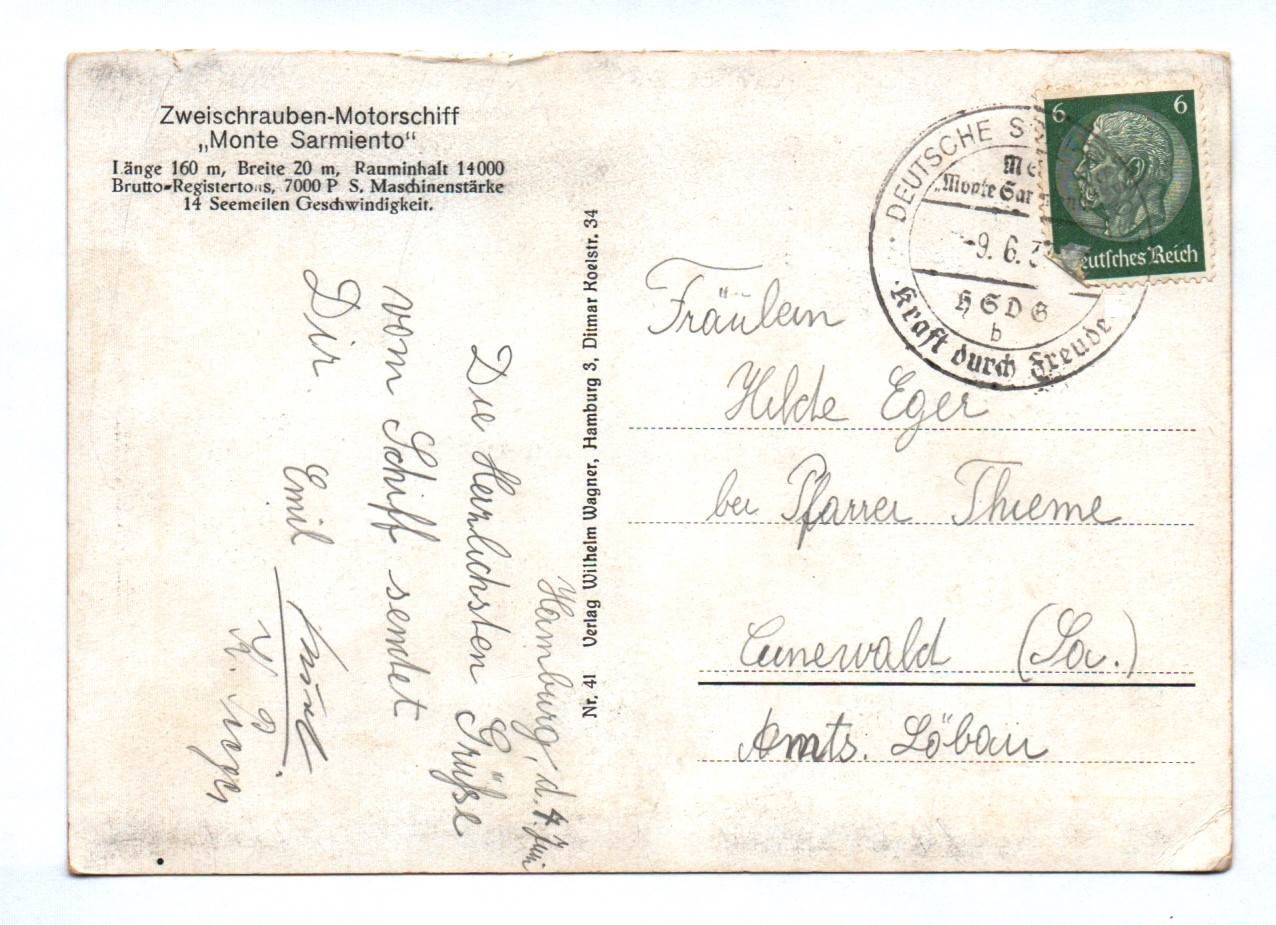 Zweischrauben-Motorschiff
„Monte Sarmiento"
Länge 160 m, Breite 20 m, Rauminhalt 14000
Brutto-Registertons, 7000 P S. Maschinenstärke
14 Seemeilen Geschwindigkeit.
Hamburg, d. 4. Juni
Die Herrlichsten Grüße
vom Schiff sendet
Dir Emil
Nr. 41 Verlag Wilhelm Wagner, Hamburg 3, Ditmar Koelstr. 34
DEUTSCHE
"Monte Sar
-9. 6. 3
HSDG
b
Kraft durch Freude
6 6
eutsches Reich
Fräulein
Hilde Eger
bei Pfarrer Thieme
Cunewald (Sa.)
Amts. Löbau